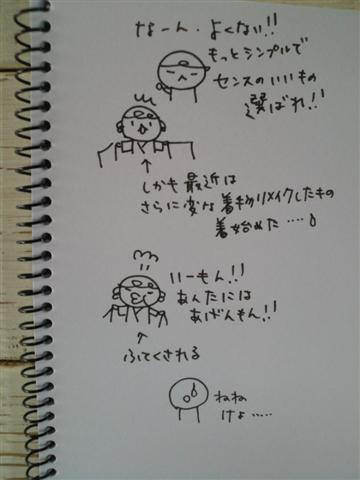 なーん、よくない!!
もっとシンプルで
センスのいいもの
選ばれ!!
↑
しかも最近は
さらに変な着物リメイクしたもの
着始めた……
いーもん!!
あんたには
あげんもん!!
↑
ふてくされる
ねね
けよ……